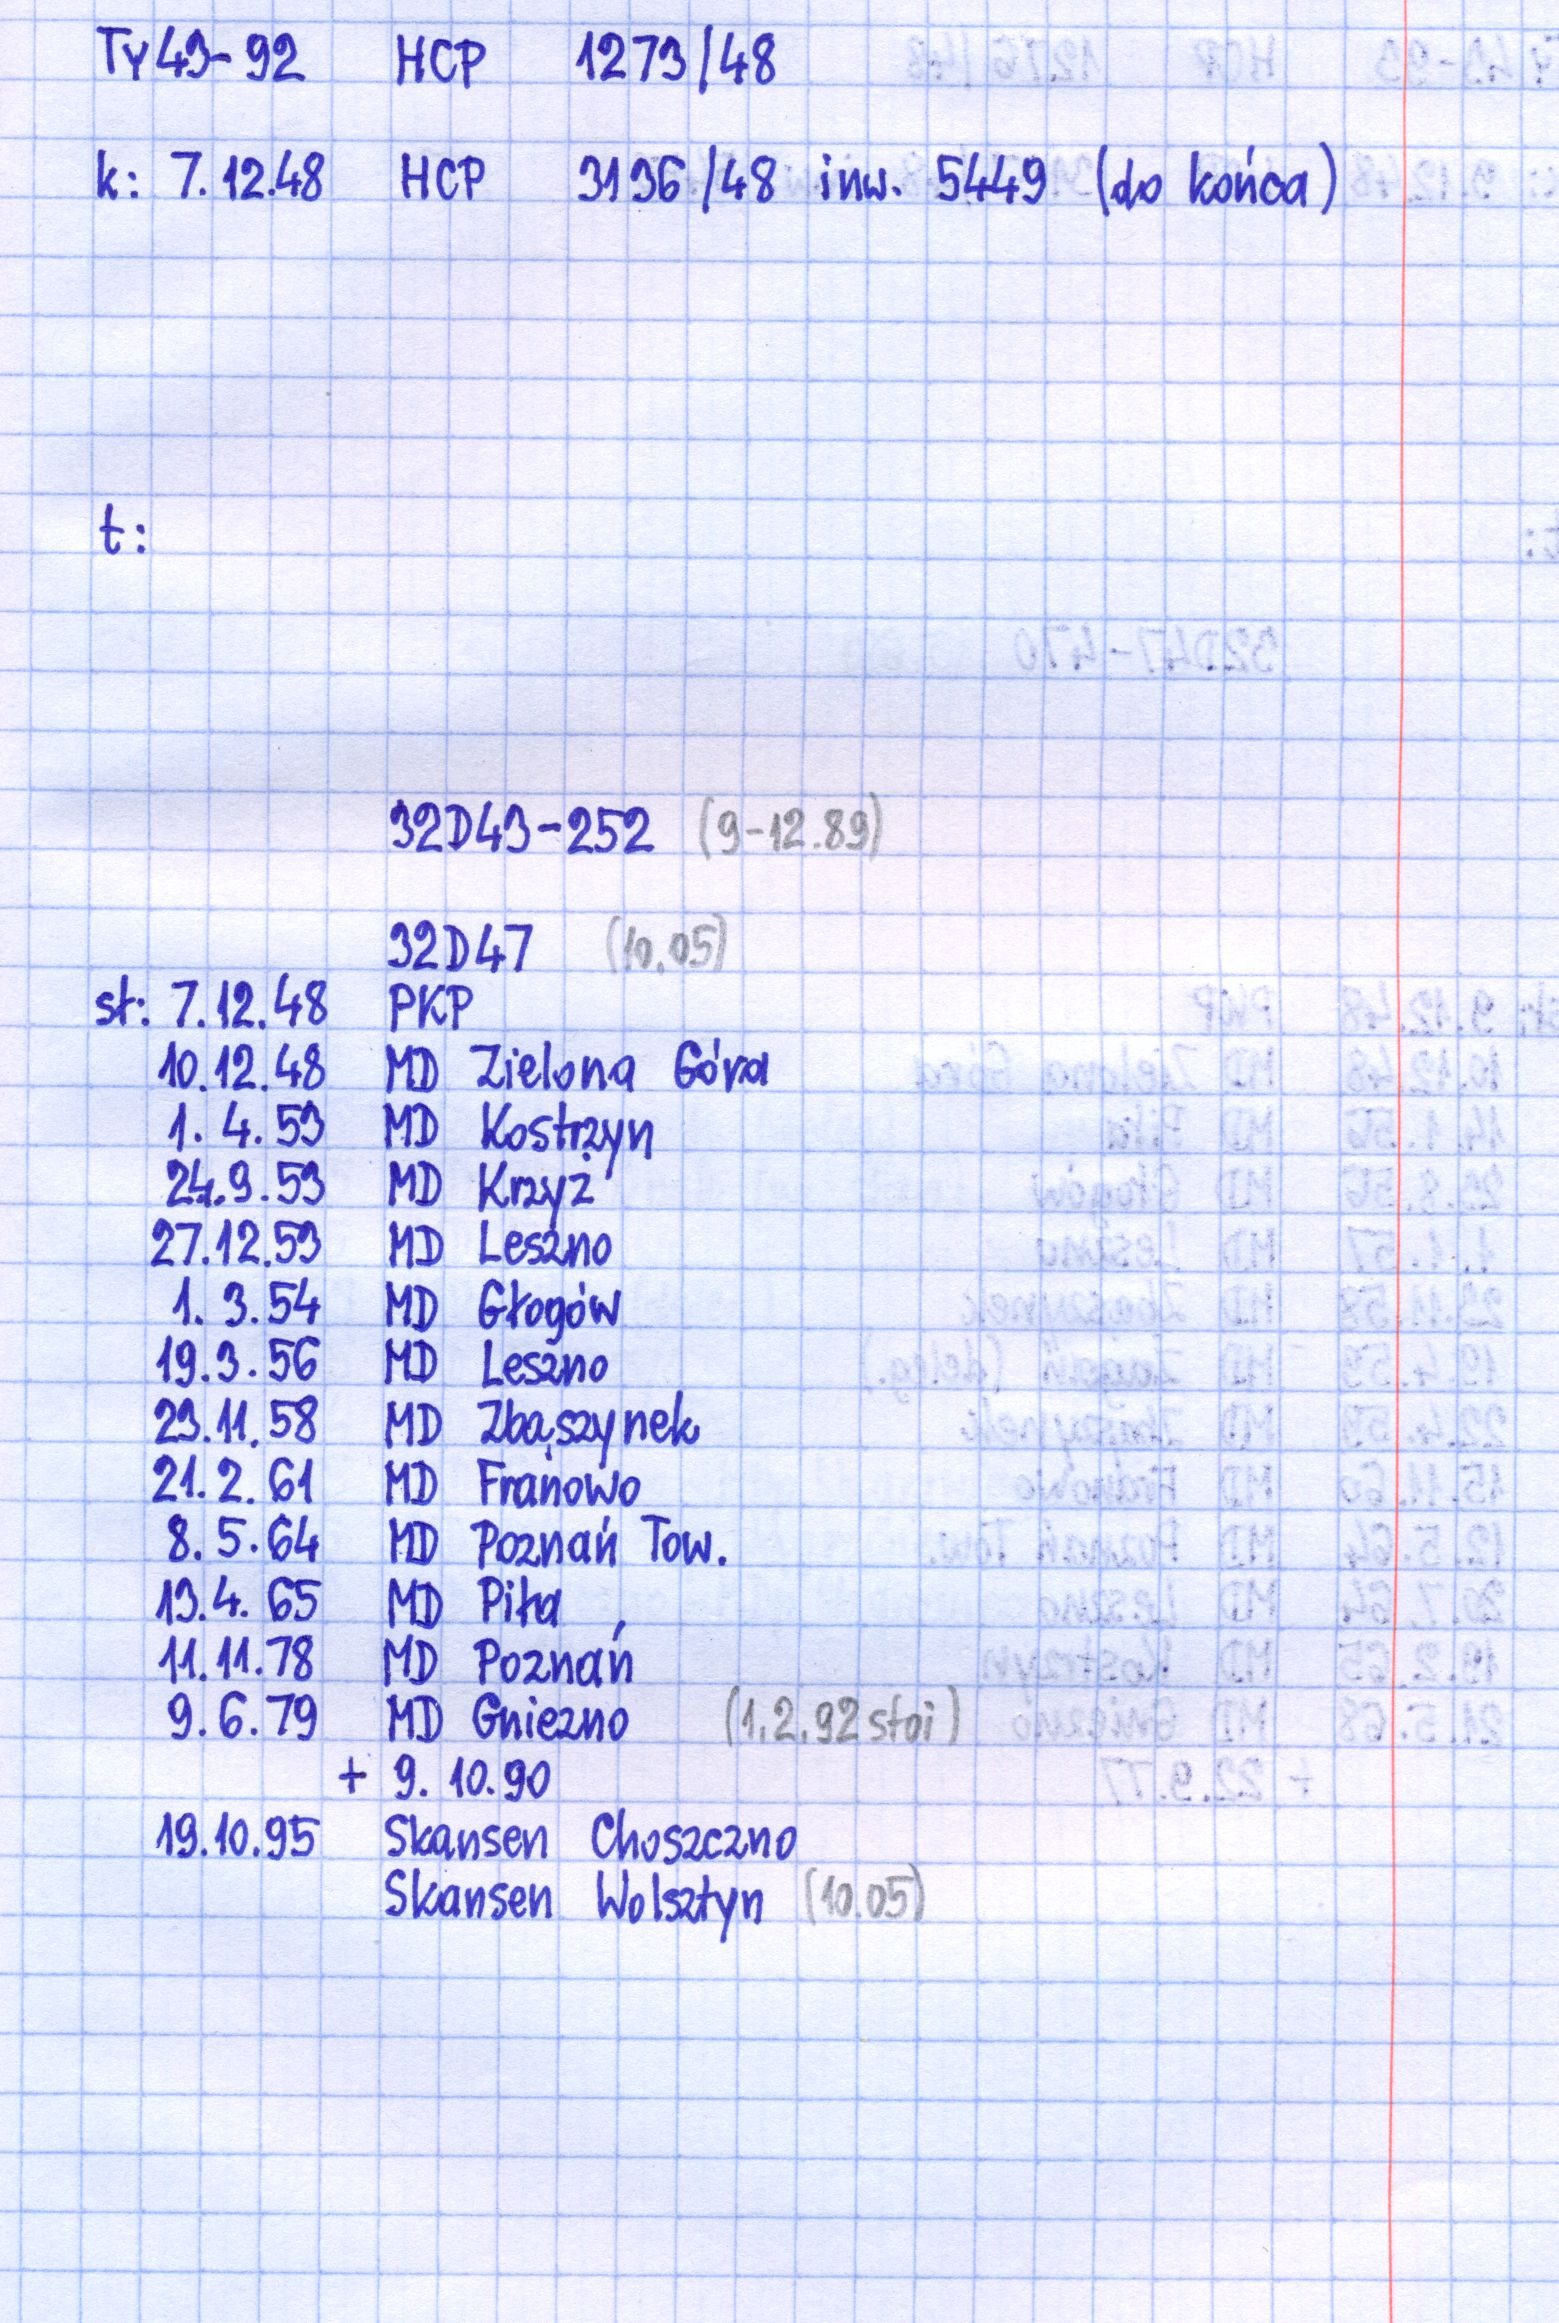 Ty43-92 HCP 1273/48
k: 7.12.48 HCP 3136/48 inw. 5449 (do końca)
t:
32D43-252 (9-12.89)
32D47 (10.05)
st: 7.12.48 PKP
10.12.48 MD Zielona Góra
1.4.53 MD Kostrzyn
24.9.53 MD Krzyż
27.12.53 MD Leszno
1.3.54 MD Głogów
19.3.56 MD Leszno
23.11.58 MD Zbąszynek
21.2.61 MD Franowo
8.5.64 MD Poznań Tow.
13.4.65 MD Piła
11.11.78 MD Poznań
9.6.79 MD Gniezno (1.2.92 stoi)
+ 9.10.90
19.10.95 Skansen Choszczno
Skansen Wolsztyn (10.05)